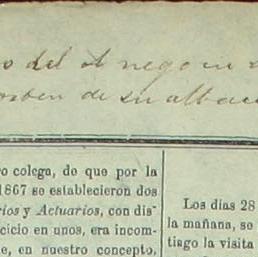 o del
orden de su albace
ro colega, de que por la
1867 se establecieron dos
rios y Actuarios, con dis-
cicio en unos, era incom-
e, en nuestro concepto,
Los dias 28
la mañana, se
tiago la visita